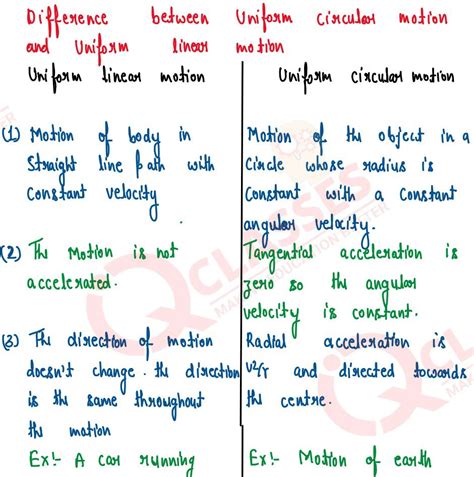 Difference between Uniform circular motion
and Uniform linear motion
Uniform linear motion
Uniform circular motion
(1) Motion of body in
straight line path with
constant velocity
Motion of the object in a
circle whose radius is
constant with a constant
angular velocity.
(2) The motion is not
accelerated.
Tangential acceleration is
zero so the angular
velocity is constant.
(3) The direction of motion
doesn't change. the direction
is the same throughout
the motion
Radial acceleration is
v²/r and directed towards
the centre.
Ex:- A car running
Ex:- Motion of earth
CLASSES